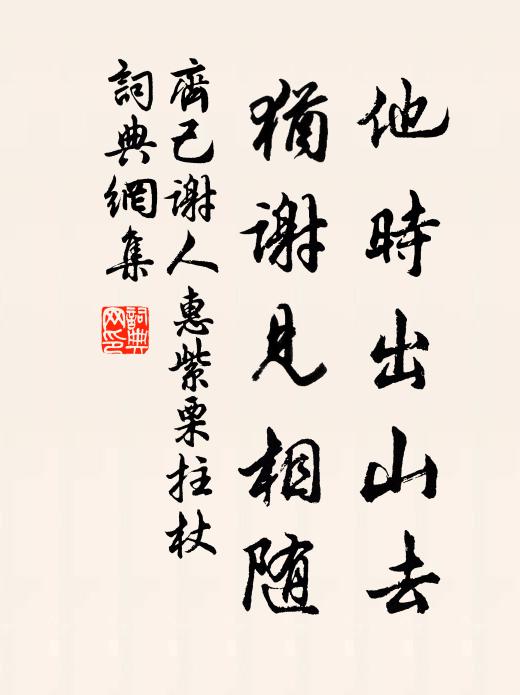 他時出山去
猶謝見相随
齊己謝人惠紫栗拄杖
詞典網集
詞典
网印